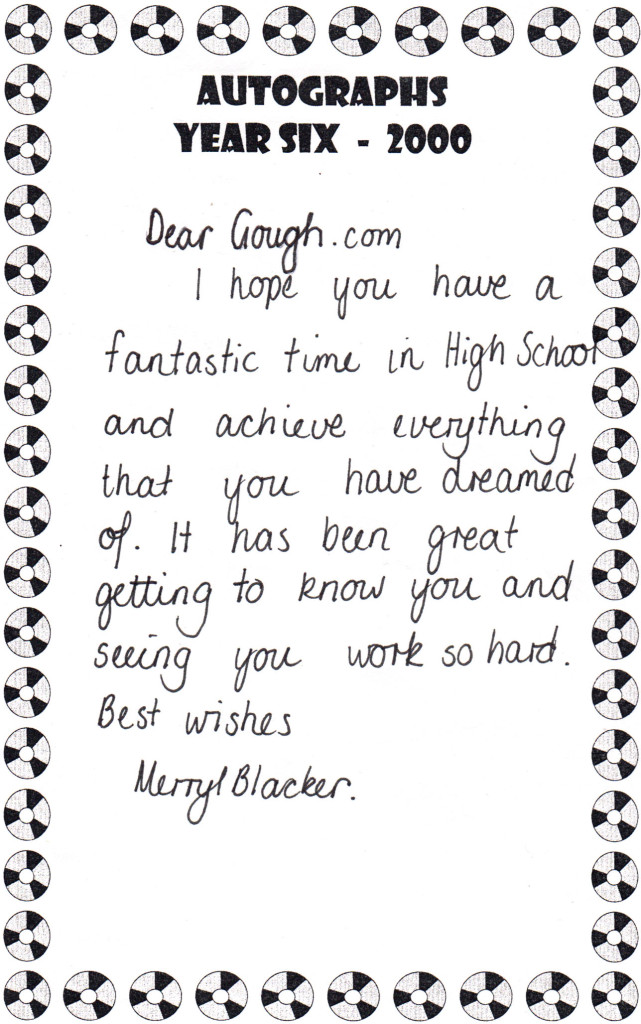 AUTOGRAPHS
YEAR SIX - 2000
Dear Gough.com
I hope you have a
fantastic time in High School
and achieve everything
that you have dreamed
of. It has been great
getting to know you and
seeing you work so hard.
Best wishes
Merryl Blacker.